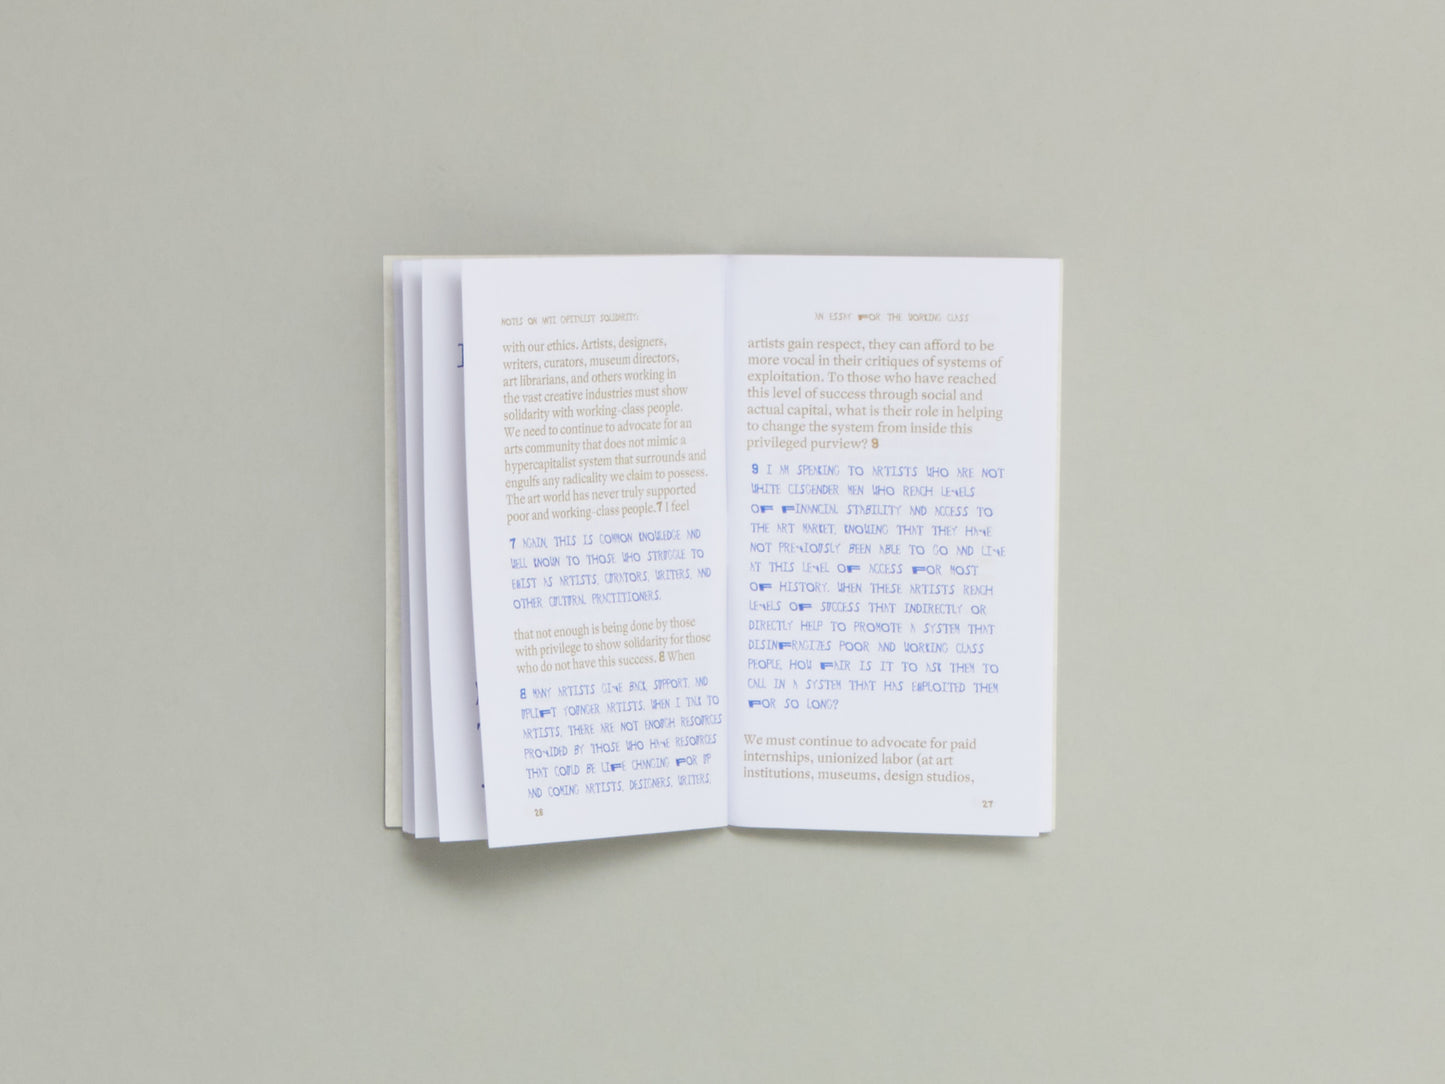 NOTES ON ANTI CAPITALIST SOLIDARITY:
with our ethics. Artists, designers,
writers, curators, museum directors,
art librarians, and others working in
the vast creative industries must show
solidarity with working-class people.
We need to continue to advocate for an
arts community that does not mimic a
hypercapitalist system that surrounds and
engulfs any radicality we claim to possess.
The art world has never truly supported
poor and working-class people.7 I feel
7 AGAIN, THIS IS COMMON KNOWLEDGE AND
WELL KNOWN TO THOSE WHO STRUGGLE TO
EXIST AS ARTISTS, CURATORS, WRITERS, AND
OTHER CULTURAL PRACTITIONERS.
that not enough is being done by those
with privilege to show solidarity for those
who do not have this success. 8 When
8 MANY ARTISTS GIVE BACK, SUPPORT, AND
UPLIFT YOUNGER ARTISTS. WHEN I TALK TO
ARTISTS, THERE ARE NOT ENOUGH RESOURCES
PROVIDED BY THOSE WHO HAVE RESOURCES
THAT COULD BE LIFE CHANGING FOR UP
AND COMING ARTISTS, DESIGNERS, WRITERS,
26
AN ESSAY FOR THE WORKING CLASS
artists gain respect, they can afford to be
more vocal in their critiques of systems of
exploitation. To those who have reached
this level of success through social and
actual capital, what is their role in helping
to change the system from inside this
privileged purview? 9
9 I AM SPEAKING TO ARTISTS WHO ARE NOT
WHITE CISGENDER MEN WHO REACH LEVELS
OF FINANCIAL STABILITY AND ACCESS TO
THE ART MARKET, KNOWING THAT THEY HAVE
NOT PREVIOUSLY BEEN ABLE TO GO AND LIVE
AT THIS LEVEL OF ACCESS FOR MOST
OF HISTORY. WHEN THESE ARTISTS REACH
LEVELS OF SUCCESS THAT INDIRECTLY OR
DIRECTLY HELP TO PROMOTE A SYSTEM THAT
DISINFRAGIZES POOR AND WORKING CLASS
PEOPLE, HOW FAIR IS IT TO ASK THEM TO
CALL IN A SYSTEM THAT HAS EXPLOITED THEM
FOR SO LONG?
We must continue to advocate for paid
internships, unionized labor (at art
institutions, museums, design studios,
27